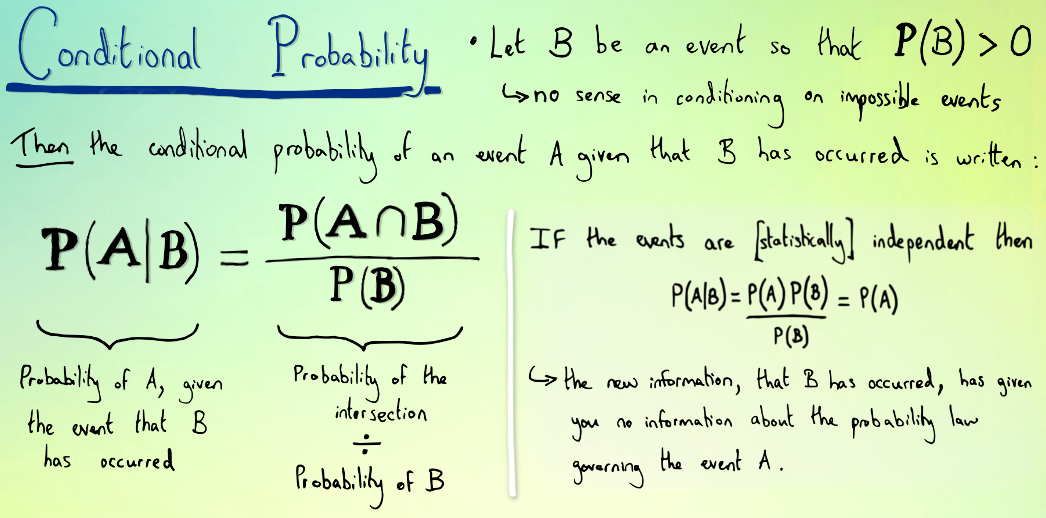 Conditional Probability
• Let B be an event so that P(B) > 0
↳ no sense in conditioning on impossible events
Then the conditional probability of an event A given that B has occurred is written :
P(A|B) = P(A∩B)
P(B)
Probability of A, given
the event that B
has occurred
Probability of the
intersection
÷
Probability of B
IF the events are [statistically] independent then
P(A|B) = P(A) P(B) = P(A)
P(B)
↳ the new information, that B has occurred, has given
you no information about the probability law
governing the event A.